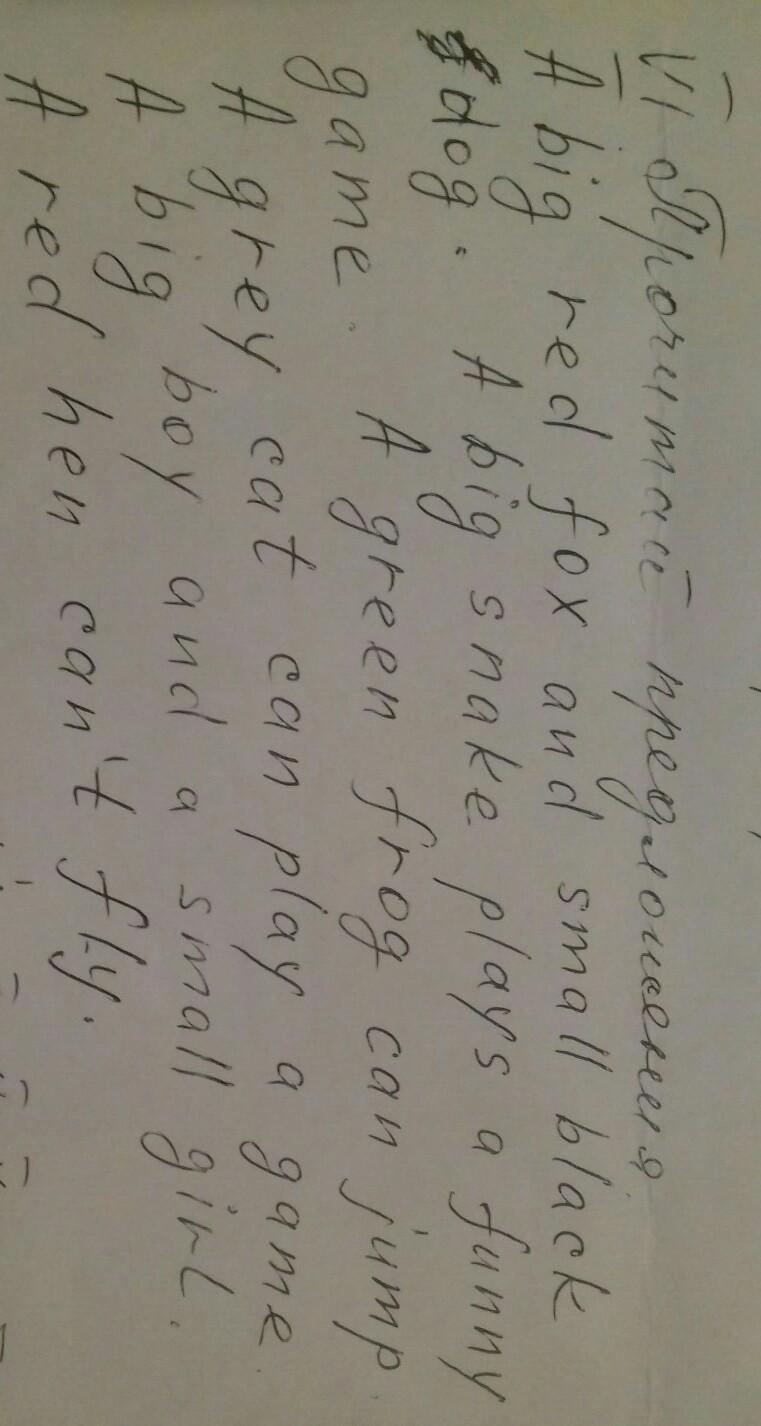 VI Прочитай предложения.
A big red fox and small black
dog. A big snake plays a funny
game. A green frog can jump.
A grey cat can play a game.
A big boy and a small girl.
A red hen can't fly.